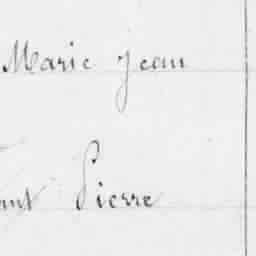 Marie Jean
Pierre